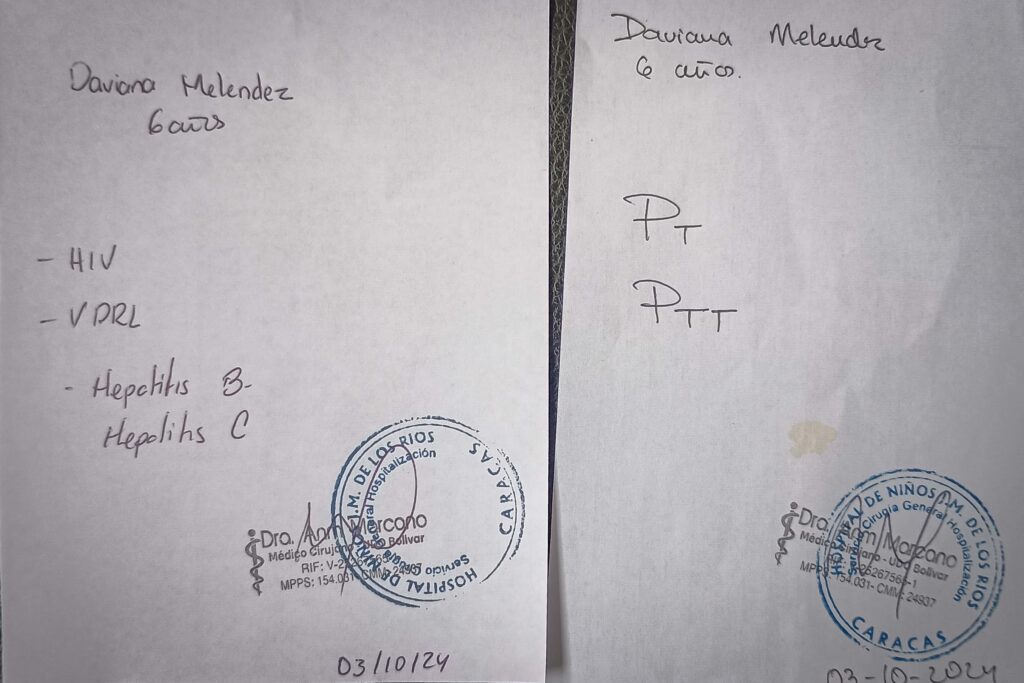 Daviana Melendez
6 años
- HIV
- VDRL
- Hepatitis B-
Hepatitis C
HOSPITAL DE J.M. DE LOS RIOS
Servicio Cirugía General Hospitalización
CARACAS
Dra. Ann Marcano
Médico Cirujano Bolivar
RIF: V-
MPPS: 154.031
03/10/24
Daviana Melendez
6 años.
PT
PTT
HOSPITAL DE NIÑOS J.M. DE LOS RIOS
Servicio Cirugía General Hospitalización
CARACAS
Dra.
Médico Cirujano - Bolivar
MPPS: 154.031- CMM: 24937
03-10-2024